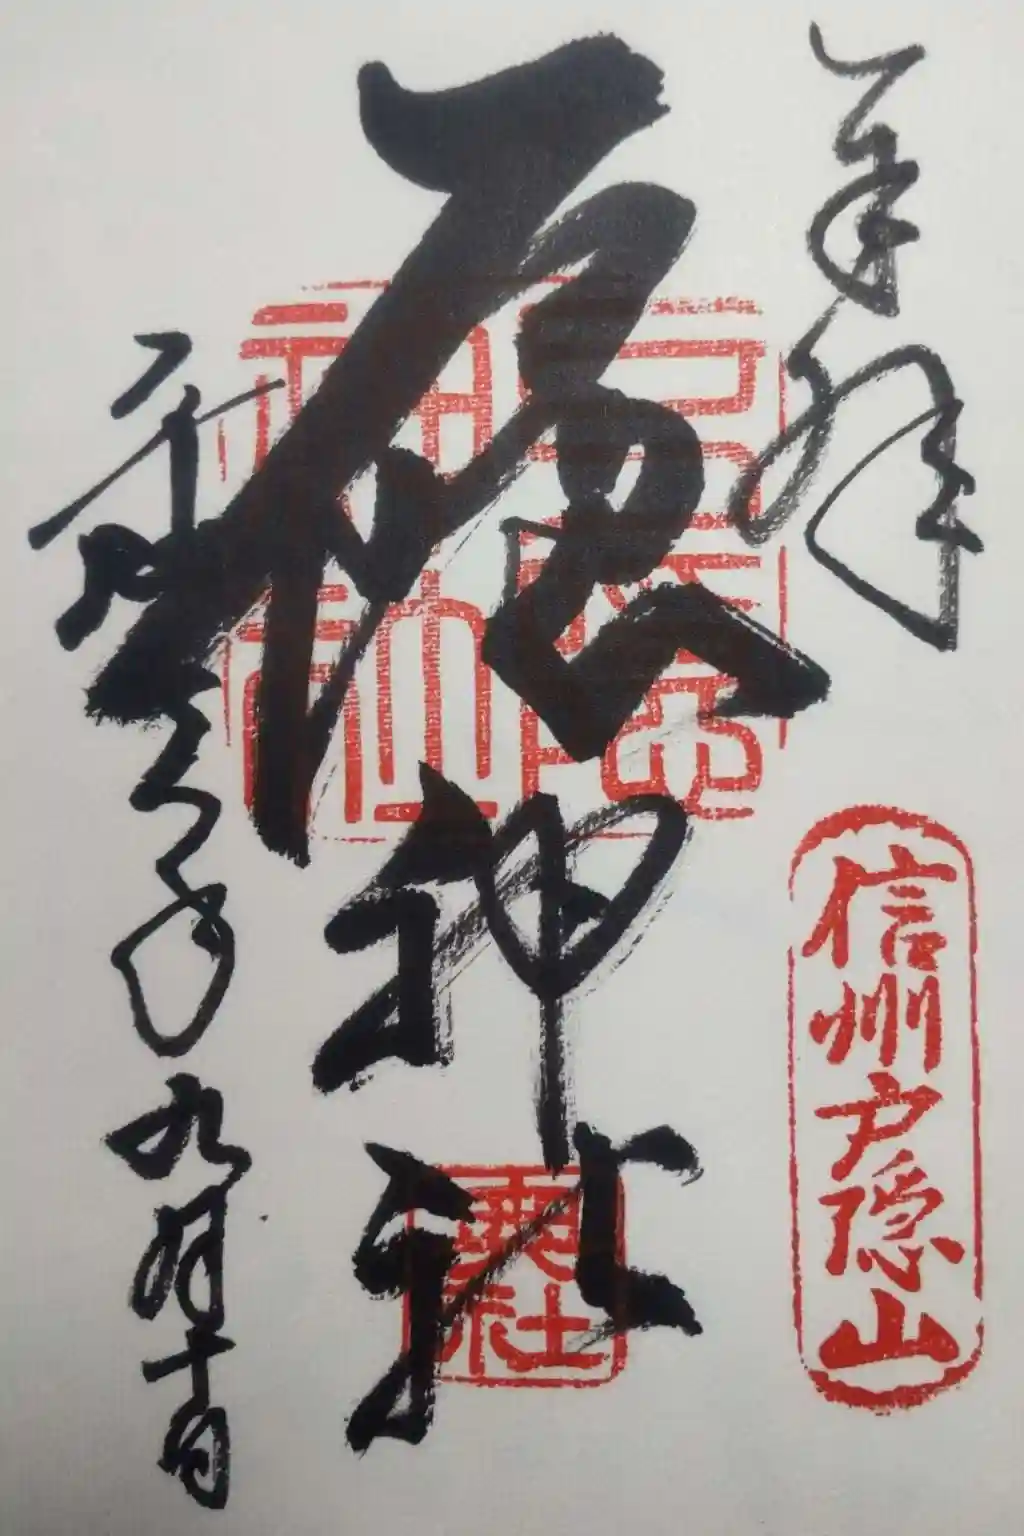 奉拝
信州戸隠山
戸隠神社
戸隠
神社
奥社
平成 年九月十日